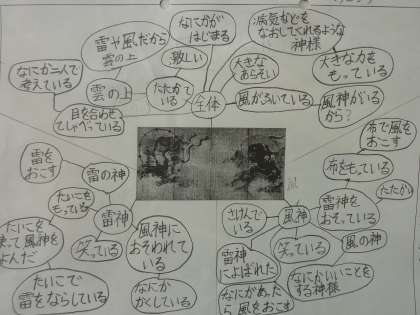 なにかが
はじまる
病気などを
なおしてくれるような
神様
雷や風だから
雲の上
激しい
大きな
あらそい
大きな力を
もっている
なにか二人で
考えている
雲の上
たたかて
いる
全体
風がふいている
風神がいる
から?
目を合わせて
しゃべっている
布で風を
おこす
雷を
おこす
雷の神
布をもっている
たいこを
もっている
雷神
たたかう
さけんで
いる
風神
雷神を
おそっている
たいこを
風神を
よんだ
笑っている
風神に
おそわれて
いる
雷神
によばれた
笑っている
風の神
たいこで
雷をならしている
なにか
かくしている
なにかいいことを
する神様
なにかあったら
風をおこす